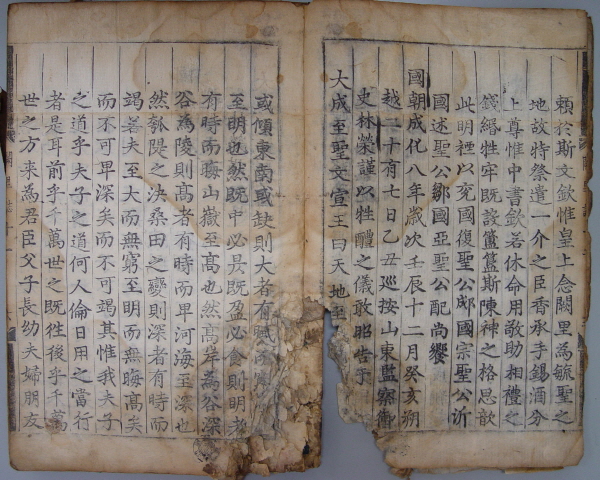 賴於斯文欽惟皇上念闕里為毓聖之
地故特祭遣一介之臣香承手錫酒分
上尊惟中書欽若休命用敬助相禮之
錢緡牲牢既設簠簋斯陳神之格思歆
此明禋以兗國復聖公郕國宗聖公沂
國述聖公鄒國亞聖公配尚饗
國朝成化八年歲次壬辰十二月癸亥朔
越二十有七日乙丑巡按山東監察御
史林榮謹以牲醴之儀敢昭告于
大成至聖文宣王曰天地至
或傾東南或缺則大者有
至明也然既中必昃既盈必食則明者
有時而晦山嶽至高也然高岸為谷深
谷為陵則高者有時而卑河海至深也
然瓠隄之決桑田之變則深者有時而
竭若夫至大而無窮至明而無晦高矣
而不可卑深矣而不可竭其惟我夫子
之道乎夫子之道何人倫日用之當行
者是耳前乎千萬世之既往後乎千萬
世之方来為君臣父子長幼夫婦朋友